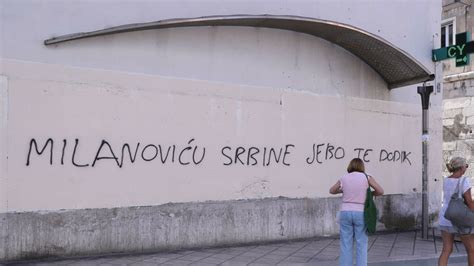 MILANOVIĆU SRBINE JEBO TE DODIK
CY